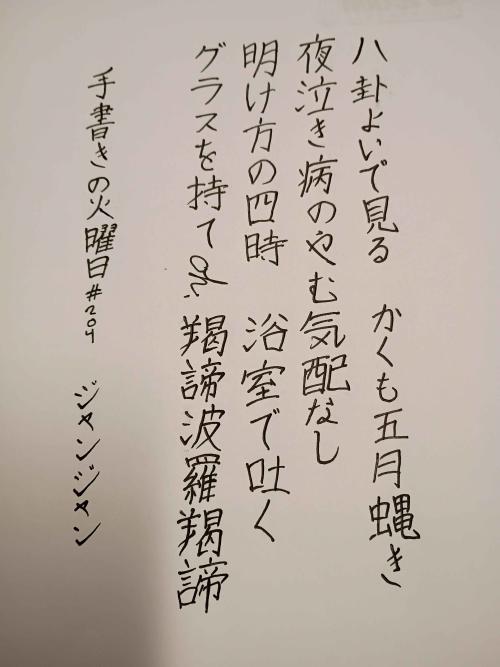 八卦よいで見る　かくも五月蝿き
夜泣き病のやむ気配なし
明け方の四時　浴室で吐く
グラスを持て oh、羯諦波羅羯諦
手書きの火曜日#204　ジャンジャン